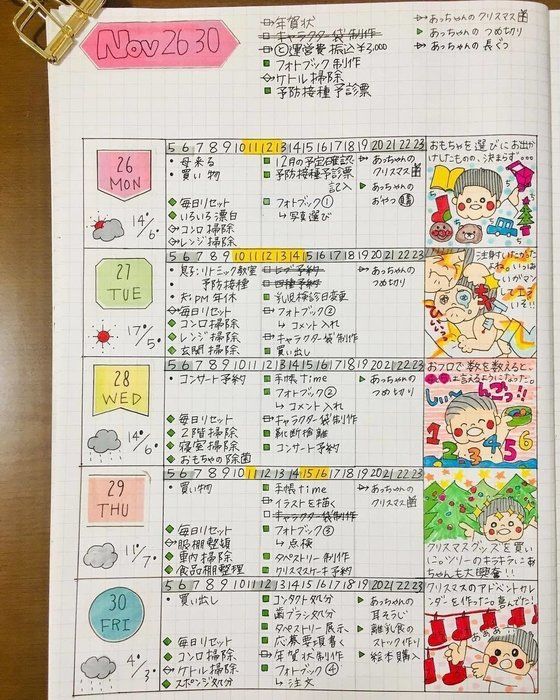 Nov 26 30
年賀状
キャラクター袋制作
運営費振込 ¥2,000
フォトブック制作
ケトル掃除
予防接種予診票
あっちゃんのクリスマス
あっちゃんのつめ切り
あっちゃんの長ぐつ
5 6 7 8 9 10 11 12 13 14 15 16 17 18 19 20 21 22 23
26
MON
14°
6°
母来る
買い物
毎日リセット
いろいろ漂白
コンロ掃除
レンジ掃除
12月の予定確認
予防接種予診票
記入
フォトブック①
↳写真選び
あっちゃんのクリスマス
あっちゃんの
おやつ
おもちゃを選びにお出か
けしたものの、決まらず…
5 6 7 8 9 10 11 12 13 14 15 16 17 18 19 20 21 22 23
27
TUE
17°
5°
息子:リトミック教室
予防接種
夫:PM年休
毎日リセット
コンロ掃除
レンジ掃除
玄関掃除
ヒブ予約
四種予約
乳児検診日変更
フォトブック②
↳コメント入れ
キャラクター袋制作
買い出し
あっちゃんの
つめ切り
5 6 7 8 9 10 11 12 13 14 15 16 17 18 19 20 21 22 23
28
WED
14°
6°
コンサート予約
毎日リセット
2階掃除
寝室掃除
おもちゃの除菌
手帳time
フォトブック②
↳コメント入れ
キャラクター袋制作
靴断捨離
コンサート予約
あっちゃんの
つめ切り
おフロで数を数えると、
は言えるようになった。
しぃ〜
ごっ!!
1 2 3 4 5 6
5 6 7 8 9 10 11 12 13 14 15 16 17 18 19 20 21 22 23
29
THU
11°
7°
買い物
毎日リセット
服棚整頓
車内掃除
食品棚整理
手帳time
イラストを描く
キャラクター袋制作
フォトブック③
↳点検
タペストリー制作
クリスマスケーキ予約
あっちゃんの
クリスマス
クリスマスグッズを買い
に。ツリーのキラキラにあっ
ちゃんも大興奮!!
5 6 7 8 9 10 11 12 13 14 15 16 17 18 19 20 21 22 23
30
FRI
4°
3°
買い出し
毎日リセット
コンロ掃除
ケトル掃除
スポンジ処分
コンタクト処分
歯ブラシ処分
タペストリー展示
応募票項書く
年賀状制作
フォトブック④
↳注文
あっちゃんの
耳そうじ
離乳食の
ストック作り
絵本購入
クリスマスのアドベントカレ
ンダーを作った。喜んでた!